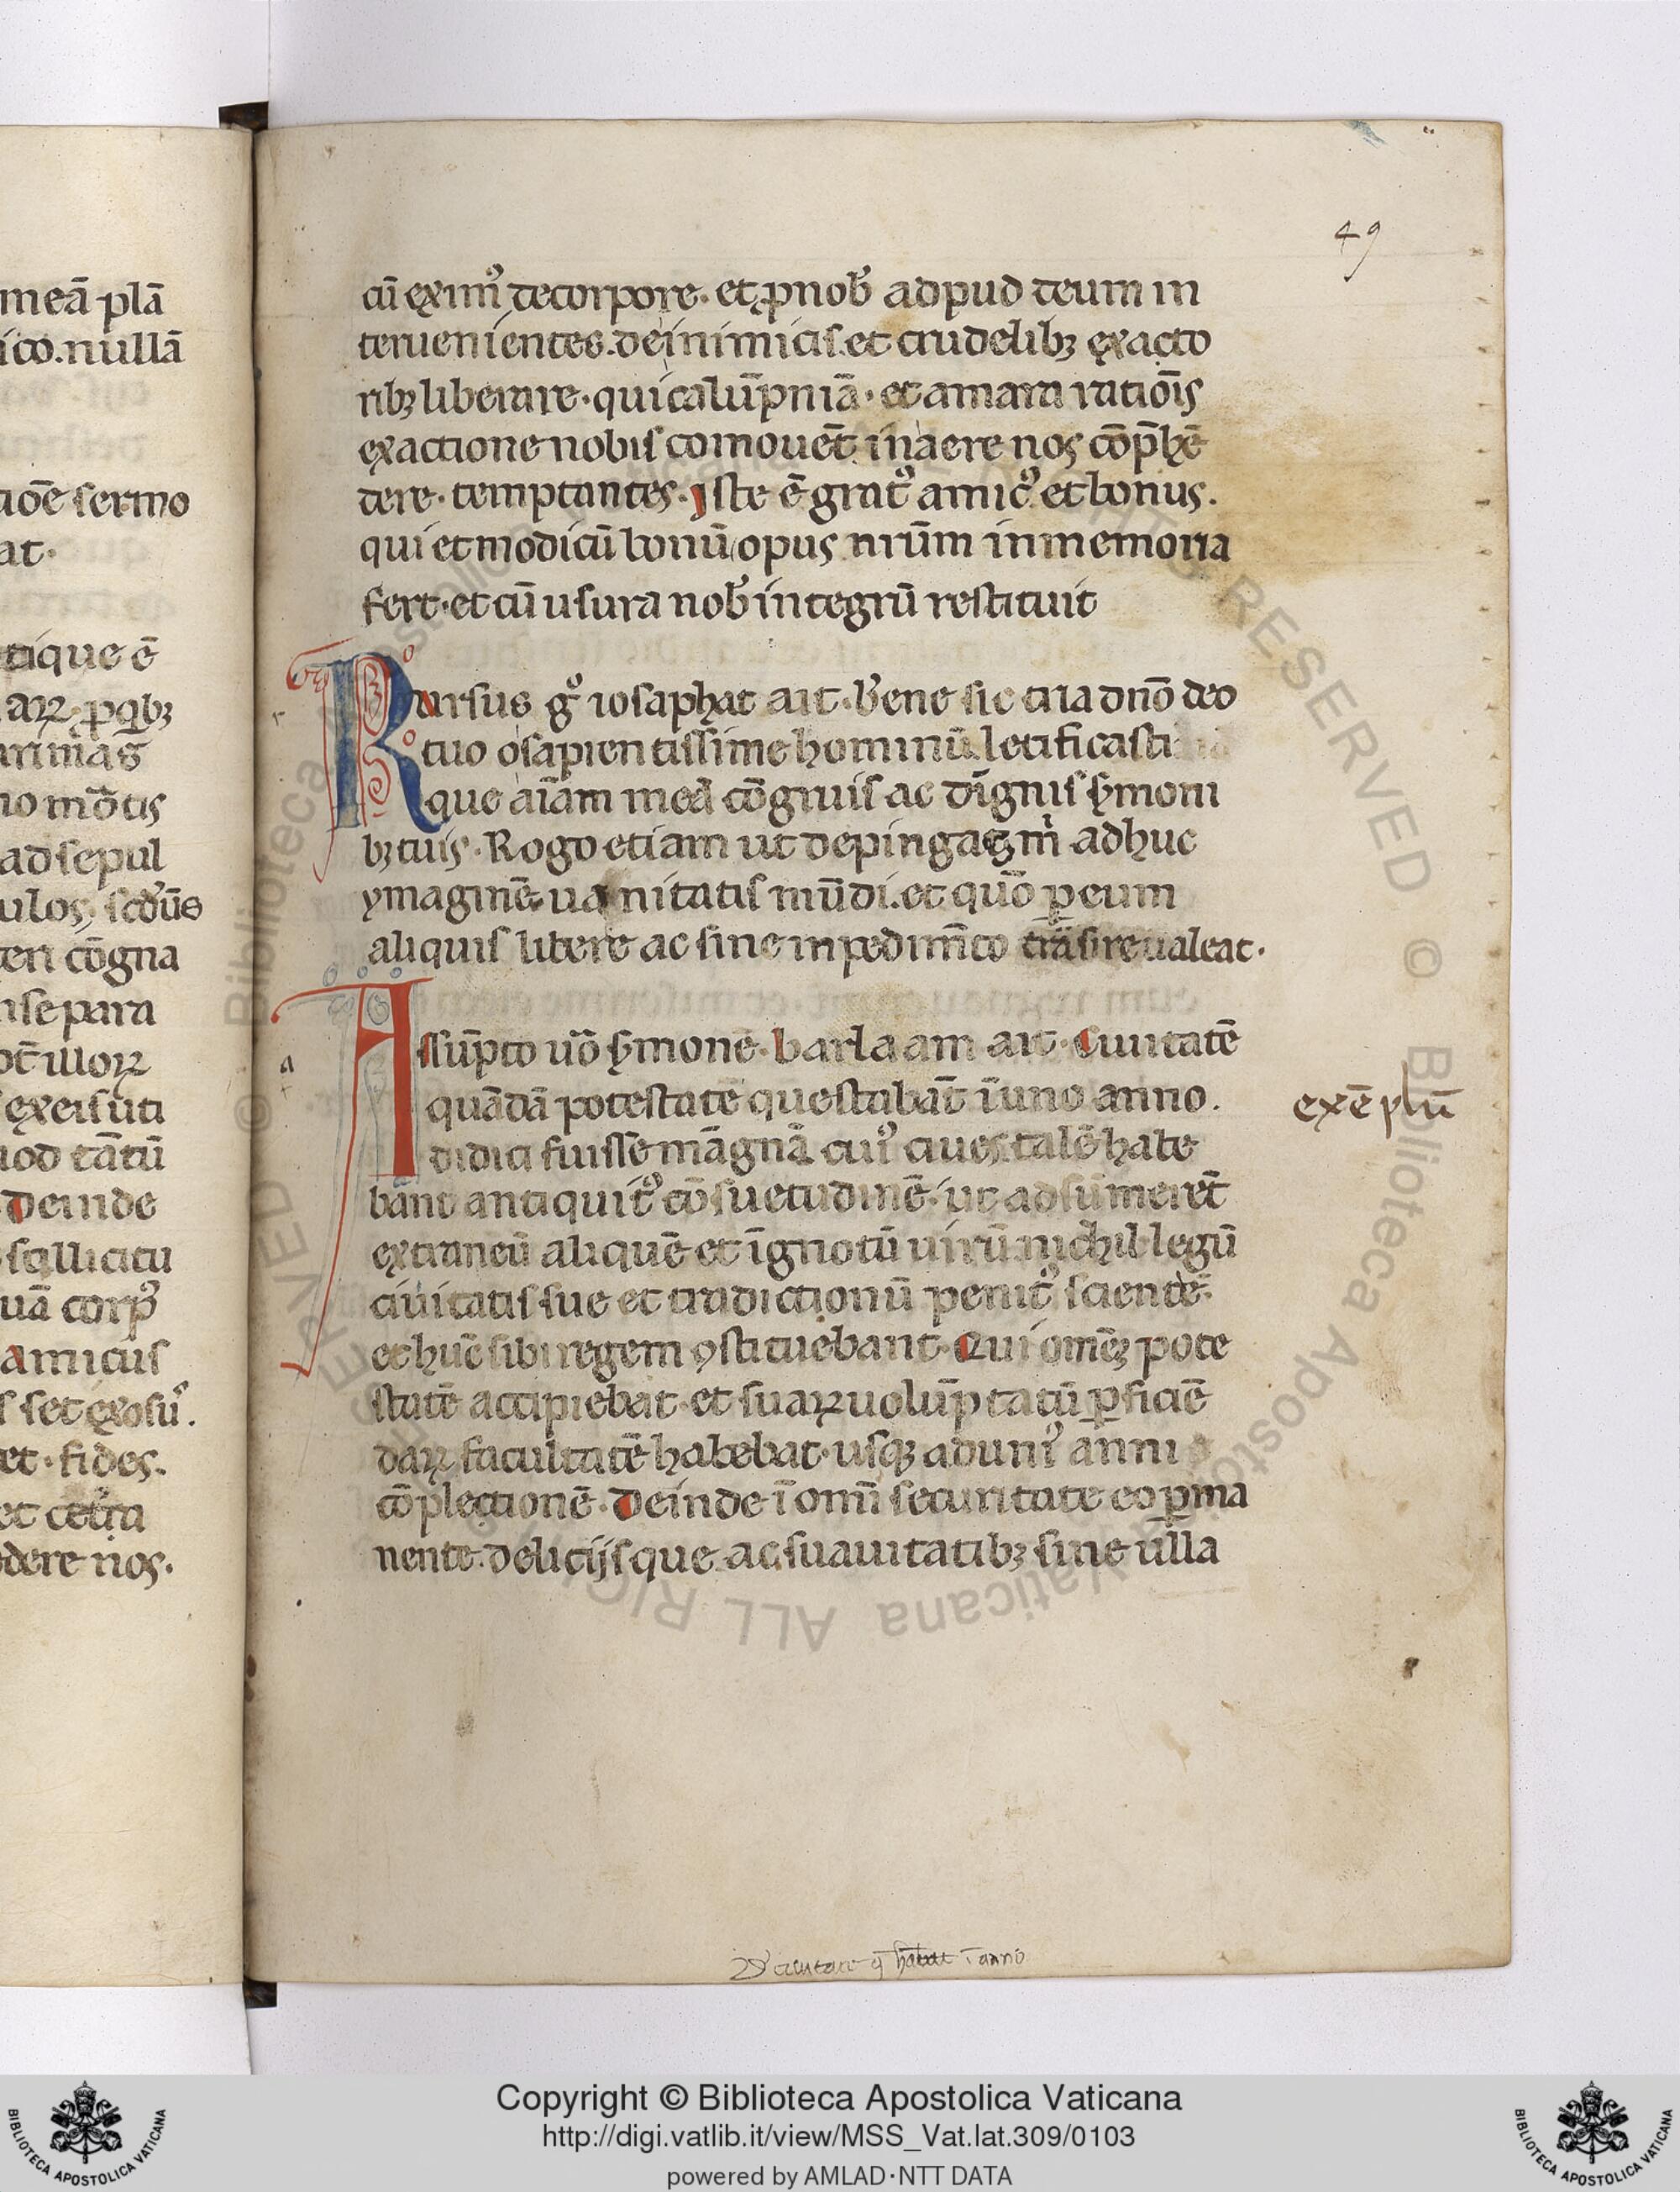 49
meā plā
ico. nullā
tiōē sermo
at.
tique ē
aꝝ ꝓqbꝫ
animas
mōtis
ad sepul
ulos, scđūs
teri cōgna
se para
illoꝝ
exeisuti
uod tātū
Deinde
sollicitu
uā corpꝰ
amicus
set exosuꝰ.
et. fides.
et cetera
dere nos.
cū eximꝰ decorpore. et ꝓ nob̄ adpud deum in
teruenientes. deinimicis. et crudelibꝫ exacto
ribꝫ liberare. qui calūpniā. et amara ratiōis
exactione nobis comouēt inaere nos cōp̄hē
dere. temptantes. iste ē gratꝰ amicꝰ et bonus.
qui et modicū bonū opus nr̄um in memoria
fert. et cū usura nob̄ integrū restituit
Rursus gͦ iosaphat ait. Bene sic tria dnō deo
tuo o sapientissime hominū letificasti
que aīam meā cōgruis ac dignis s̄moni
bꝫ tuis. Rogo etiam ut depingas m̄ adhuc
ymaginē uanitatis mūdi. et quō ꝑ eum
aliquis libere ac sine inpedim̄to trāsire ualeat.
Assūpto u̅o s̄mone. barlaam ait. Ciuitatē
quādā potestatē que stabāt ī uno anno.
exēplū
didici fuisse māgnā cuiꝰ ciues talē habe
bant antiquitꝰ cōsuetudinē. ut adsumerēt
extraneū aliquē et ignotū uirū nichil legū
ciuitatis sue et tradictionū penitꝰ scientē.
et hūc sibi regem ꝯstituebant. Qui omēꝫ pote
statē accipiebat. et suaꝝ uolūptatū ꝑficiē
daꝝ facultatē habebat. usqꝫ ad uniꝰ anni
cōplectionē. Deinde ī omī securitate eo ꝑma
nente. delicijsque ac suauitatibꝫ sine ulla
ī anno
Copyright © Biblioteca Apostolica Vaticana
http://digi.vatlib.it/view/MSS_Vat.lat.309/0103
powered by AMLAD·NTT DATA
BIBLIOTECA APOSTOLICA VATICANA
BIBLIOTECA APOSTOLICA VATICANA